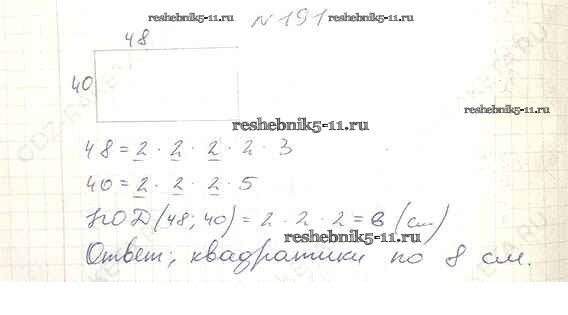 №191 reshebnik5-11.ru
48
40
reshebnik5-11.ru
reshebnik5-11.ru
48 = 2 · 2 · 2 · 2 · 3
40 = 2 · 2 · 2 · 5
НОД (48; 40) = 2 · 2 · 2 = 8 (см)
reshebnik5-11.ru
Ответ; квадратики по 8 см.